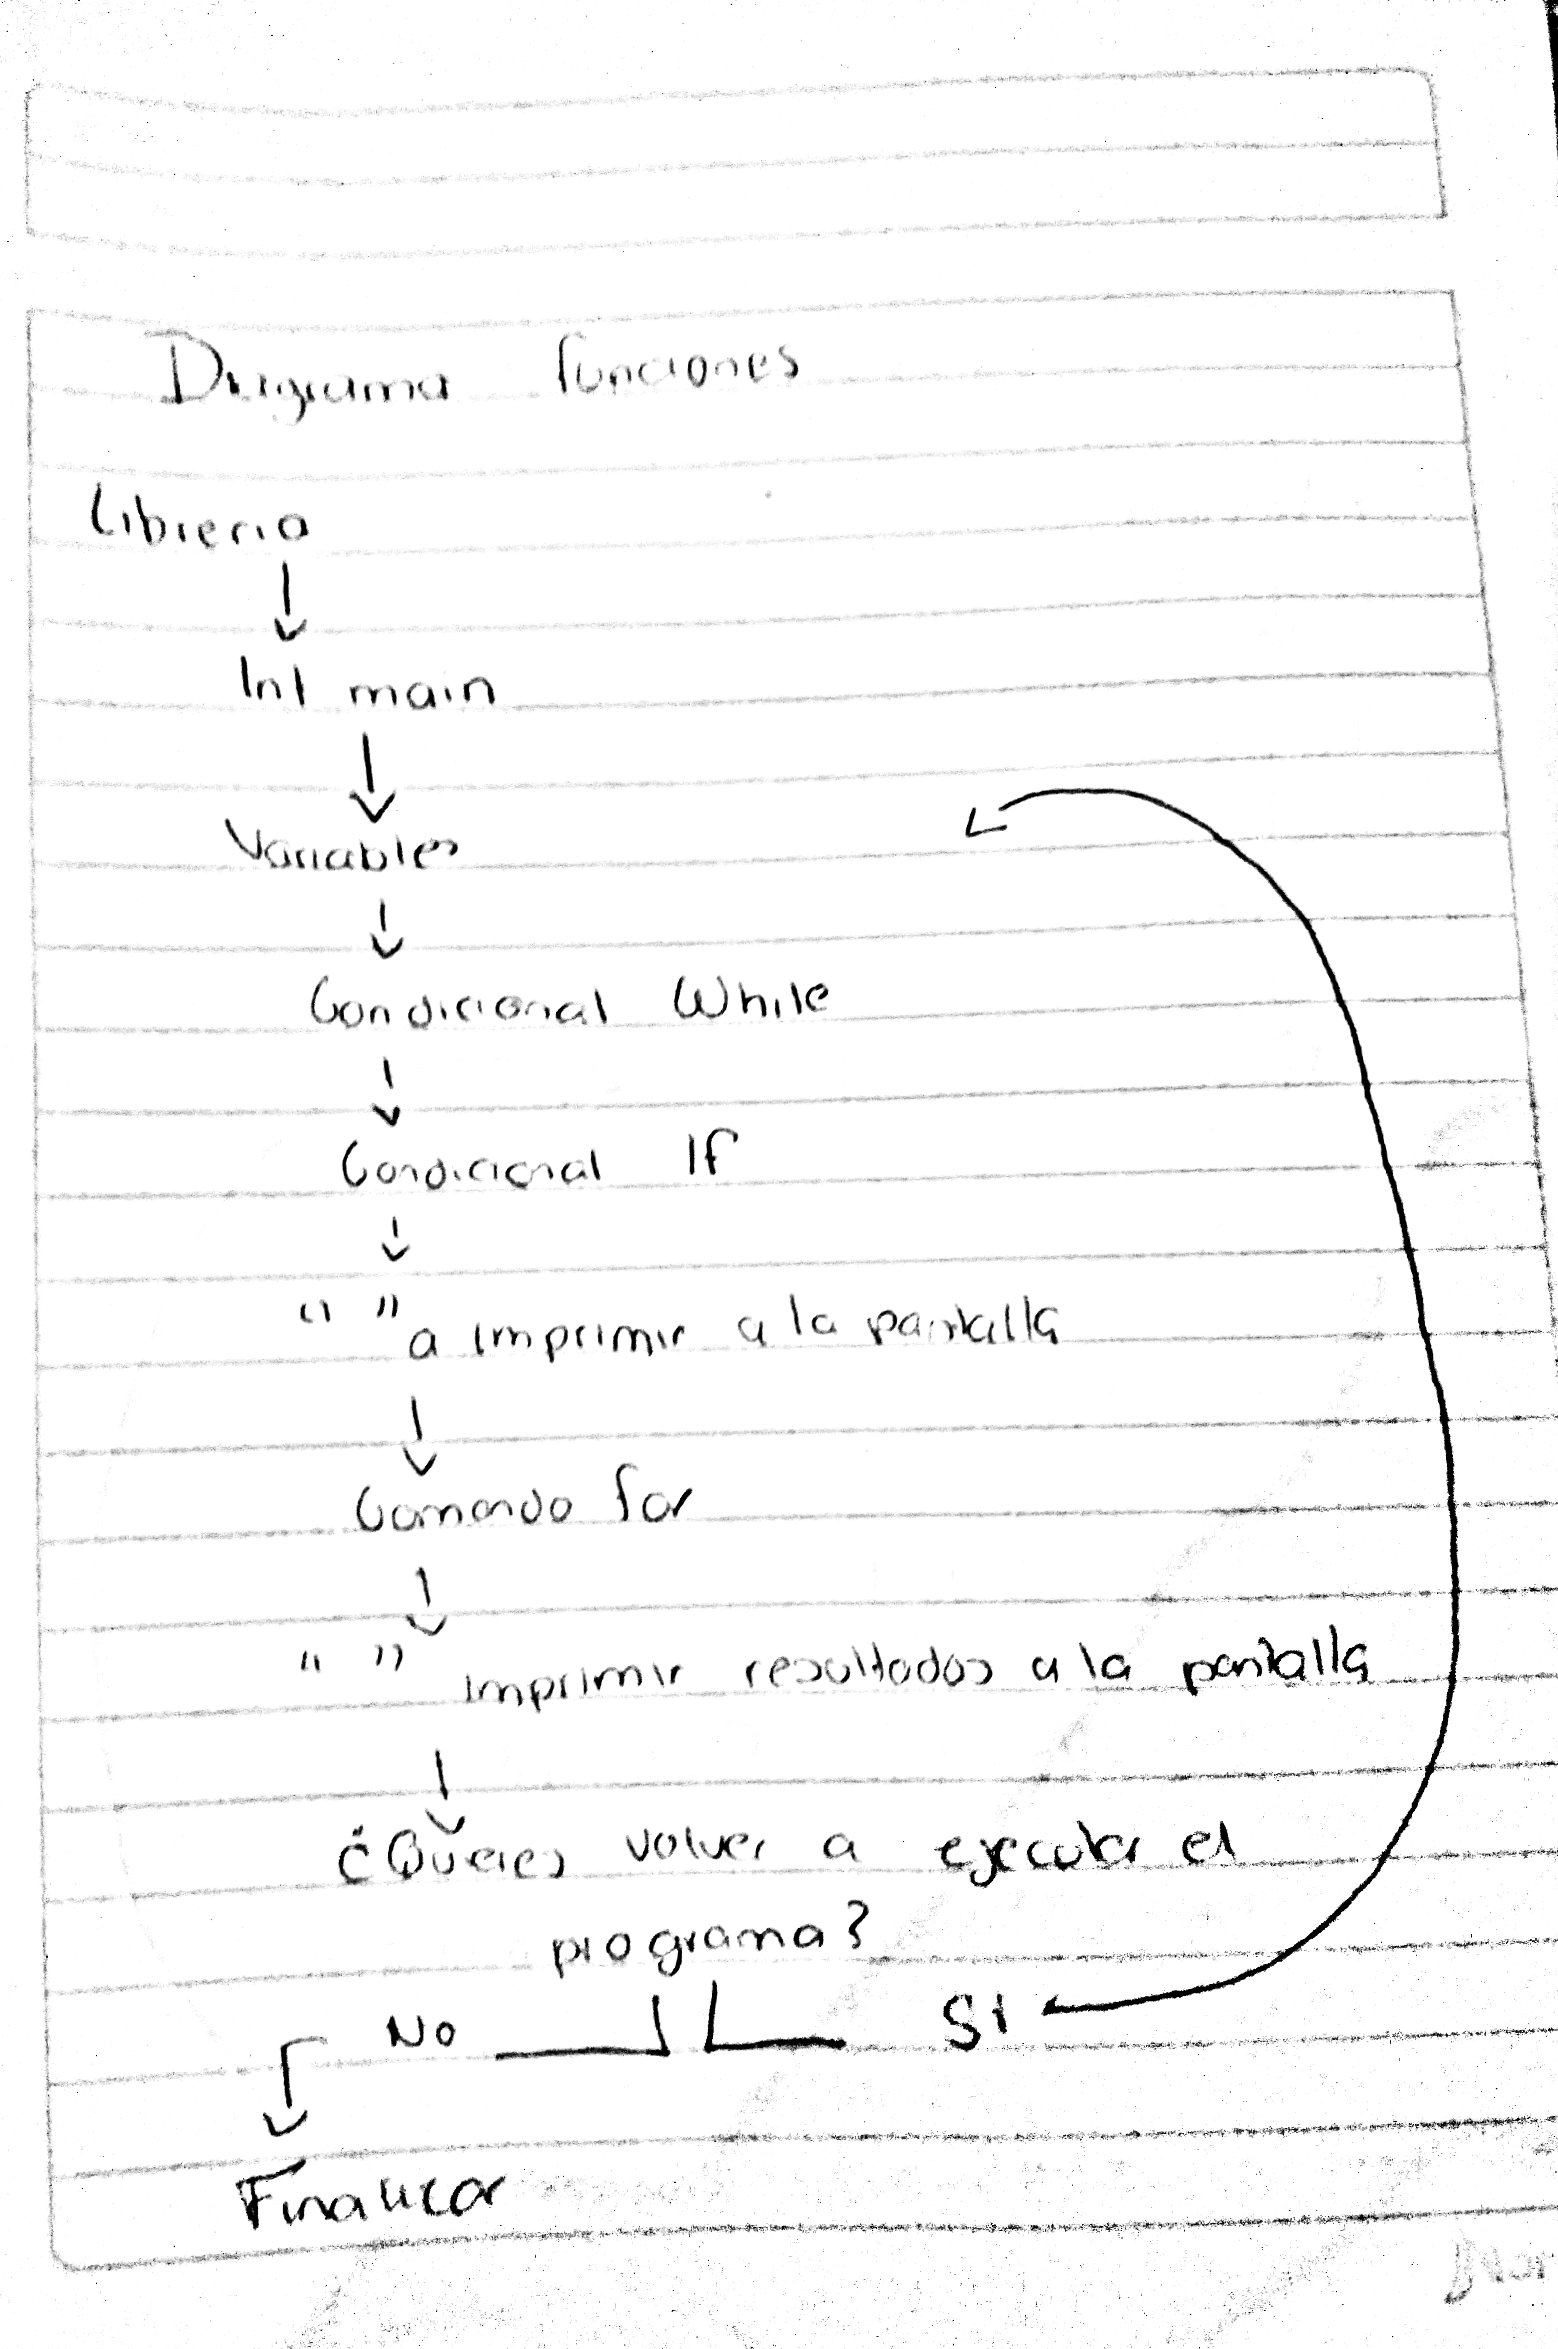 Diagrama funciones
Libreria
Int main
Variables
Condicional While
Condicional If
" " a imprimir a la pantalla
Comando for
" " imprimir resultados a la pantalla
¿Quieres volver a ejecutar el
programa?
No SI
Finalizar